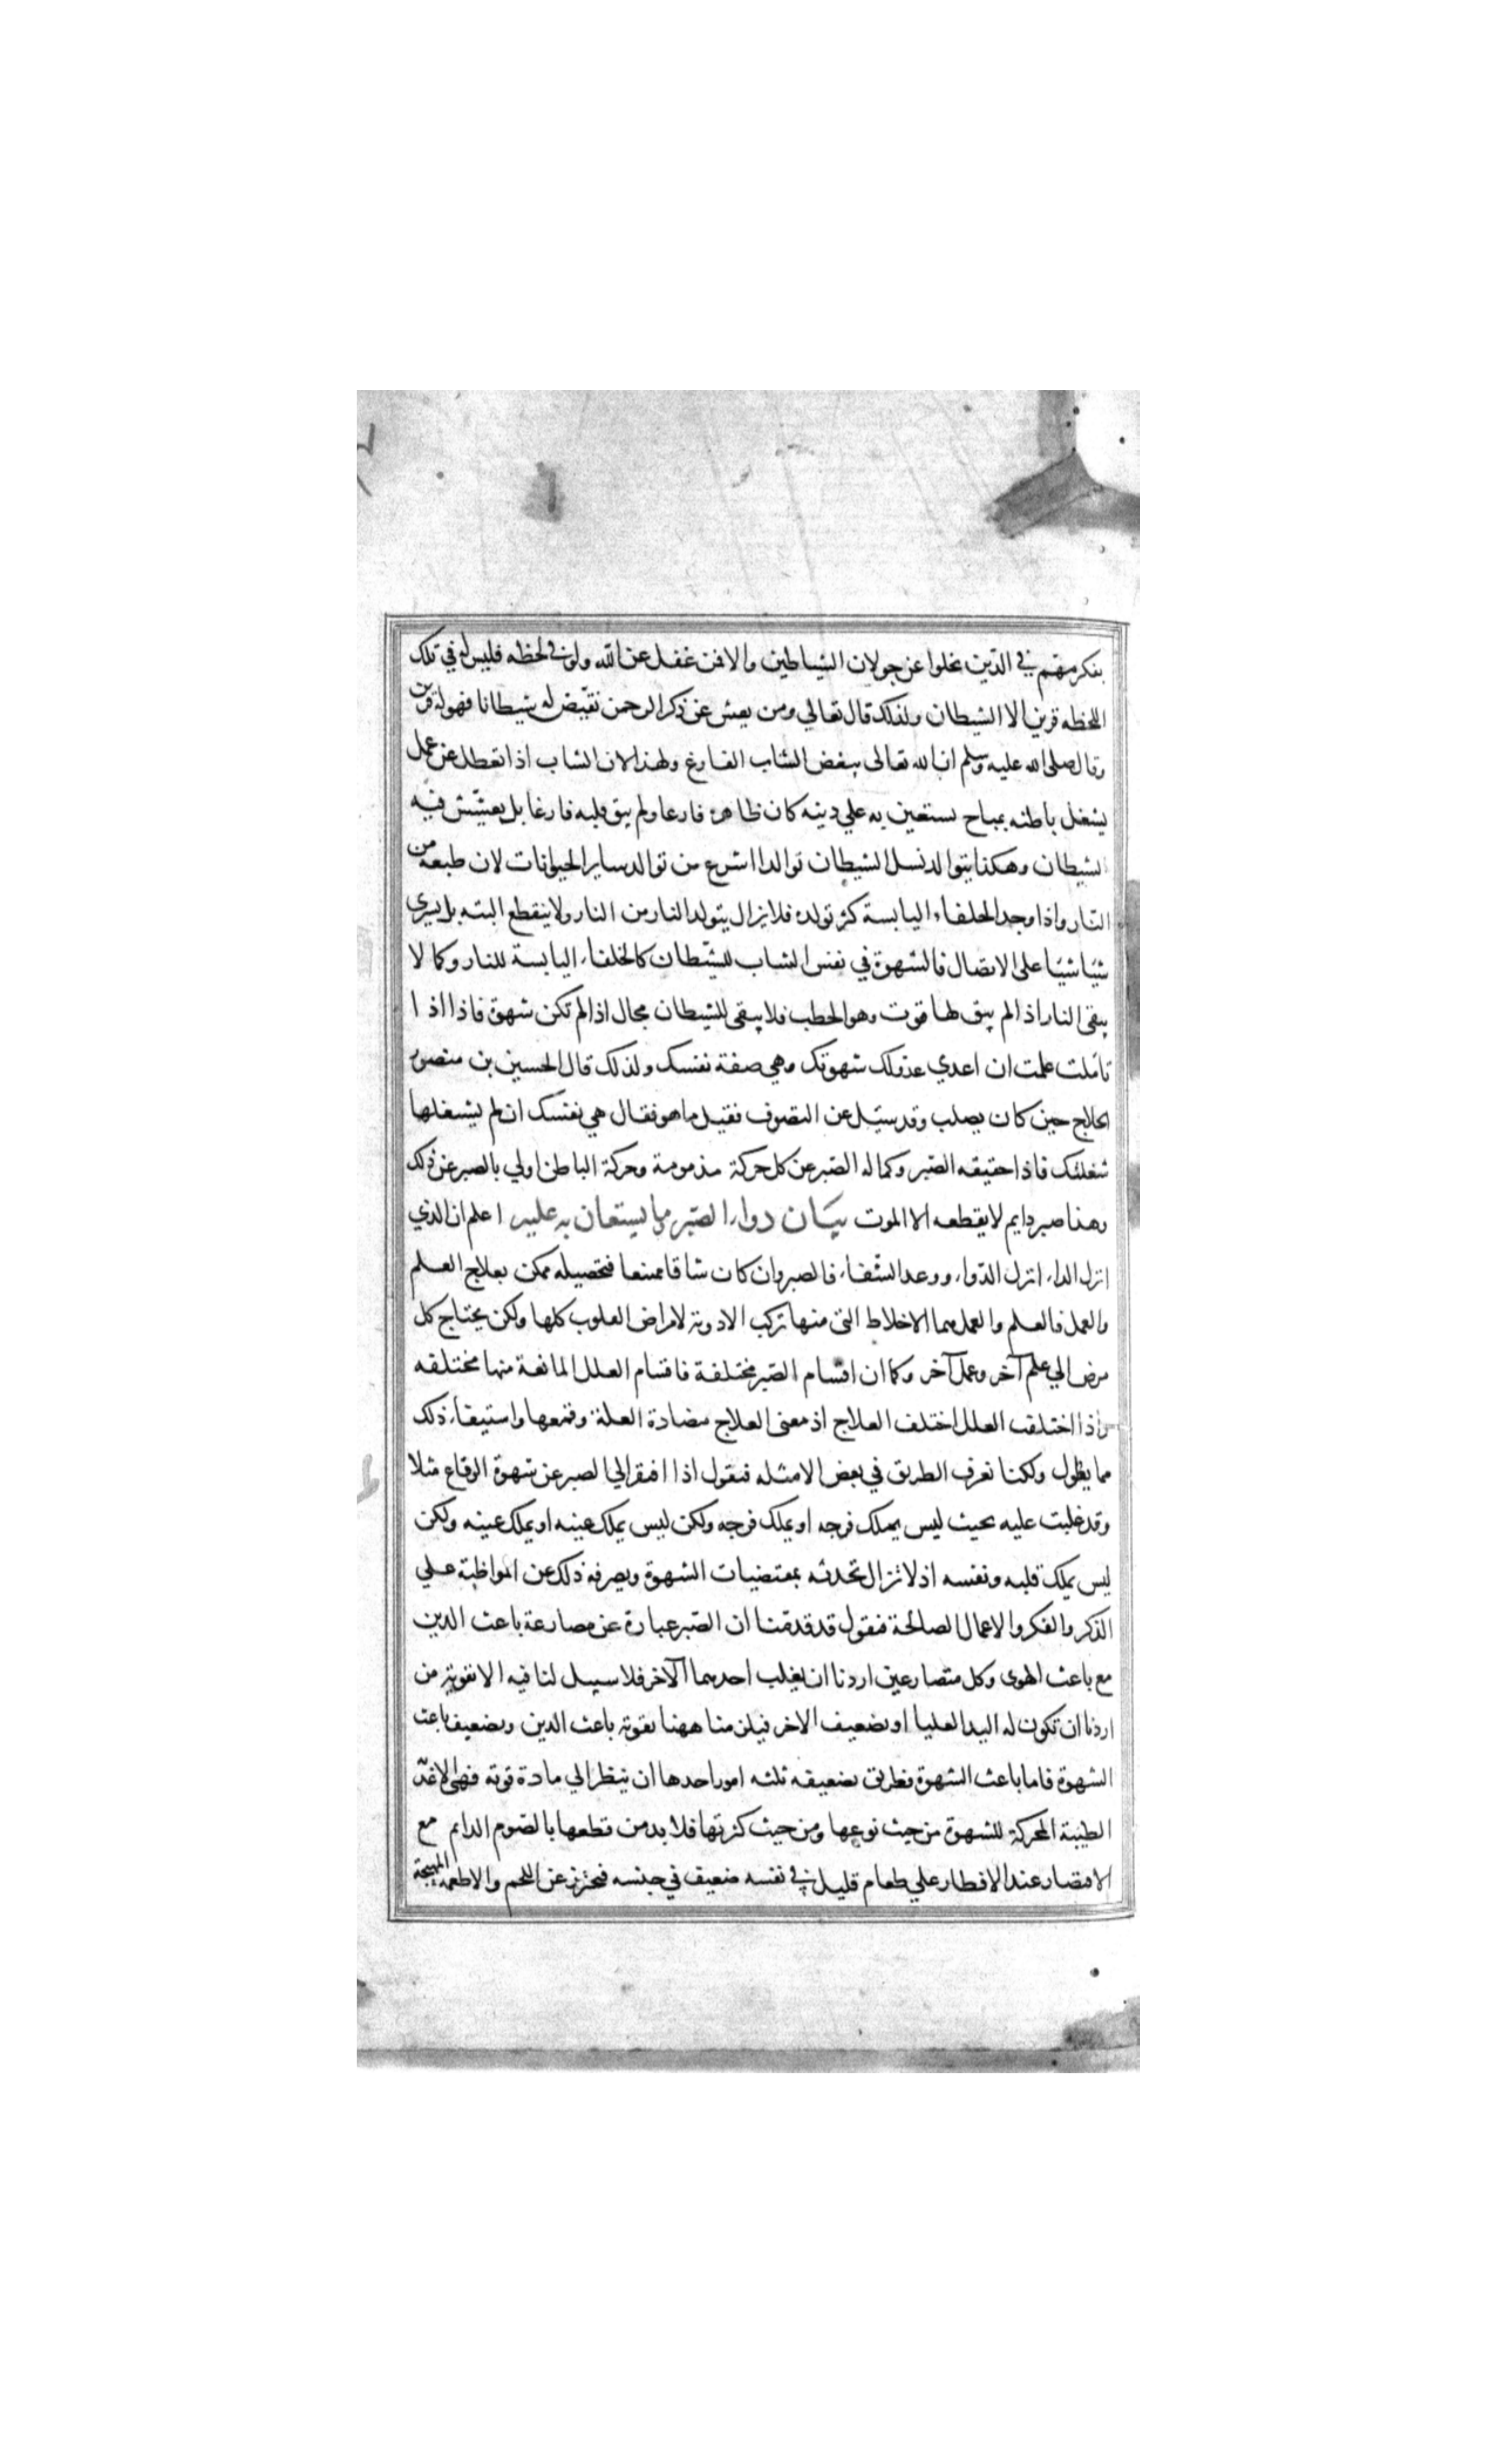 بفكر مهم في الدين يخلوا عن جولان الشياطين والا فمن غفل عن الله ولو في لحظه فليس له في تلك
اللحظه قرين الا الشيطان ولذلك قال تعالي ومن يعش عن ذكر الرحمن نقيض له شيطانا فهو له قرين
وقال صلى الله عليه وسلم ان الله تعالى يبغض الشاب الفارغ ولهذا لان الشاب اذا تعطل عن عمل
يشغل باطنه بمباح يستعين به علي دينه كان ظاهره فارغا ولم يبق قلبه فارغا بل يعشّش فيه
الشيطان وهكذا يتوالد نسل الشيطان توالدا اسرع من توالد ساير الحيوانات لان طبعه من
النار واذا وجد الحلفاء اليابسة كثر تولده فلا يزال يتولد النار من النار ولا ينقطع البته بل يسري
شيا شيا على الاتصال فالشهوة في نفس الشاب للشيطان كالحلفاء اليابسة للنار وكما لا
يبقى النار اذا لم يبق لها قوت وهو الحطب فلا يبقى للشيطان مجال اذا لم تكن شهوة فاذا اذا
تاملت علمت ان اعدي عدوك شهوتك وهي صفة نفسك ولذلك قال الحسين بن منصور
الحلاج حين كان يصلب وقد سئل عن التصوف فقيل ما هو فقال هي نفسك ان لم يشغلها
شغلتك فاذا حقيقه الصبر وكماله الصبر عن كل حركة مذمومة وحركة الباطن اولي بالصبر عن ذلك
وهذا صبر دايم لا يقطعه الا الموت بيان دواء الصبر وما يستعان به عليه اعلم ان الذي
انزل الداء انزل الدواء ووعد الشفاء فالصبر وان كان شاقا ممتنعا فتحصيله ممكن بعلاج العلم
والعمل فالعلم والعمل هما الاخلاط التى منها تركب الادوية لامراض القلوب كلها ولكن يحتاج كل
مرض الي علم آخر وعمل آخر وكما ان اقسام الصبر مختلفة فاقسام العلل المانعة منها مختلفه
واذا اختلفت العلل اختلف العلاج اذ معنى العلاج مضادة العلة وقمعها واستيفاء ذلك
مما يطول ولكنا نعرف الطريق في بعض الامثله فنقول اذا افتقر الي الصبر عن شهوة الوقاع مثلا
وقد غلبت عليه بحيث ليس يملك فرجه او يملك فرجه ولكن ليس يملك عينه او يملك عينه ولكن
ليس يملك قلبه ونفسه اذ لا تزال تحدثه بمقتضيات الشهوة ويصرفه ذلك عن المواظبة علي
الذكر والفكر والاعمال الصالحة فنقول قد قدمنا ان الصبر عبارة عن مصارعة باعث الدين
مع باعث الهوى وكل متصارعين اردنا ان يغلب احدهما الآخر فلا سبيل لنا فيه الا تقوية من
اردنا ان تكون له اليد العليا او تضعيف الاخر فيلزمنا ههنا تقوية باعث الدين وتضعيف باعث
الشهوة فاما باعث الشهوة فطريق تضعيفه ثلثه امور احدها ان ينظر الي مادة قوته فهى الاغذية
الطيبة المحركة للشهوة من حيث نوعها ومن حيث كثرتها فلا بد من قطعها بالصوم الدايم مع
الاقتصار عند الافطار علي طعام قليل في نفسه ضعيف في جنسه فيحترز عن اللحم والاطعمه المهيجة